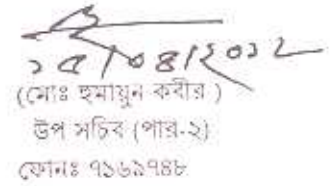 ১৫/০৪/২০১২
(মোঃ হুমায়ুন কবীর )
উপ সচিব (পার-২)
ফোনঃ ৭১৬৯৭৪৮